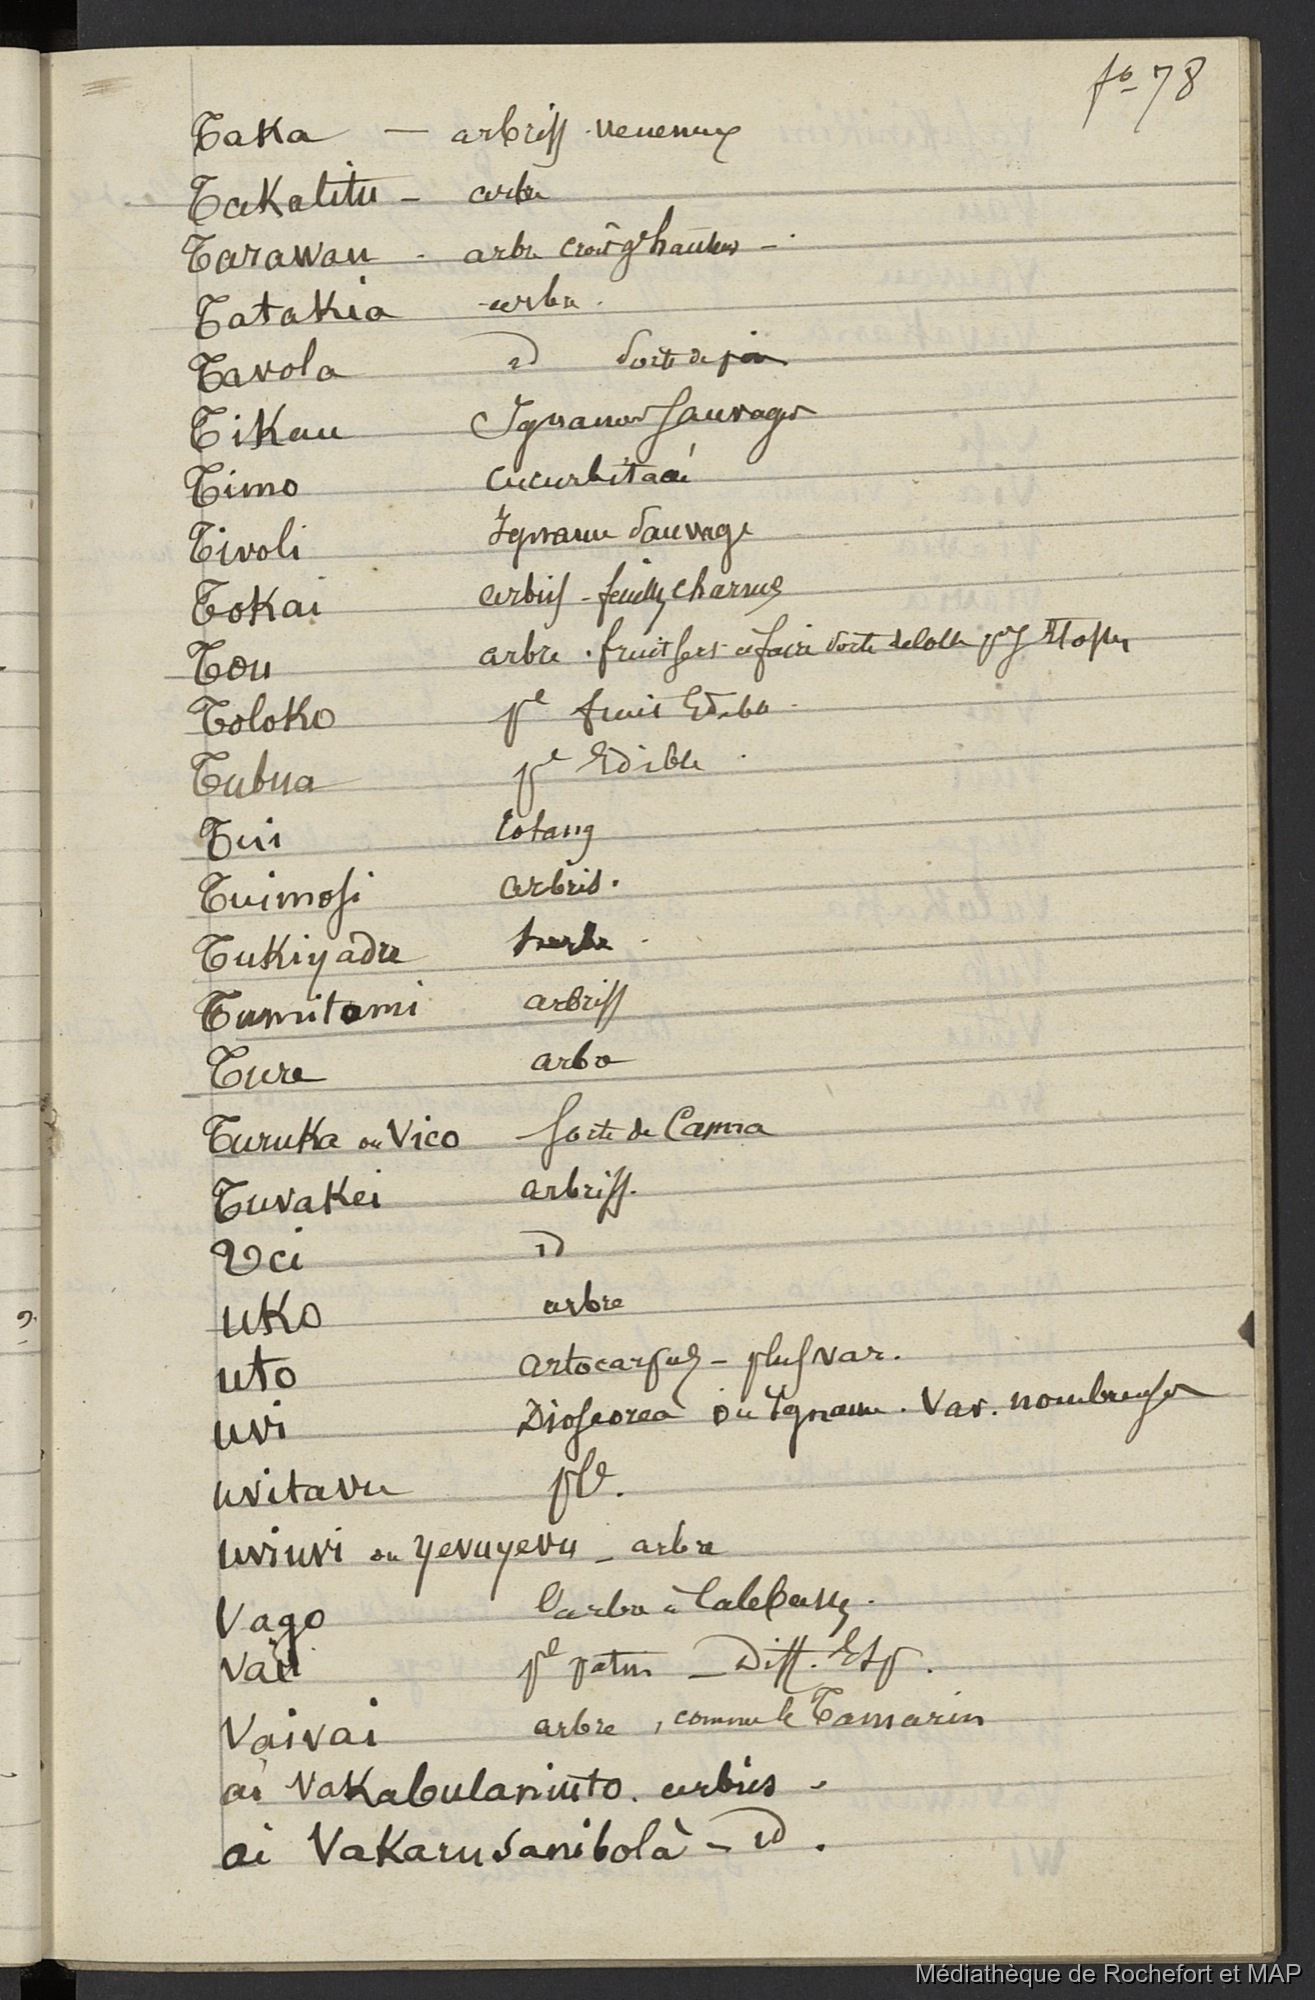 fo 78
Taka — arbriss. veneneux
Takalitu - arbre
Tarawau - arbre croit gde hauteur -
Tatakia arbre.
Tavola id sorte de pin
Tikau Ignames sauvages
Timo cucurbitacé
Tivoli Igname sauvage
Tokai arbris - feuilles charnues
Tou arbre. fruit sert à faire sorte de colle pr Etoffes
Toloko pte fruit Edible.
Tubua pte Edible.
Tui
Tuimosi arbris.
Tukiyadre herbe.
Tumitomi arbriss
Ture arbre
Turuka ou Vico sorte de Canna
Tuvakei arbriss.
Uci id
uko arbre
uto artocarpus - plus var.
uvi Dioscorea ou Igname. Var. nombreuses
uvitavu pte.
uviuvi ou yevuyevu - arbre
Vago l'arbre à Calebasses.
Vai pte - Diff. Esp.
Vaivai arbre, comme le Tamarin
ai Vakabulaniuto. arbris -
ai Vakarusanibola - id.
Médiathèque de Rochefort et MAP